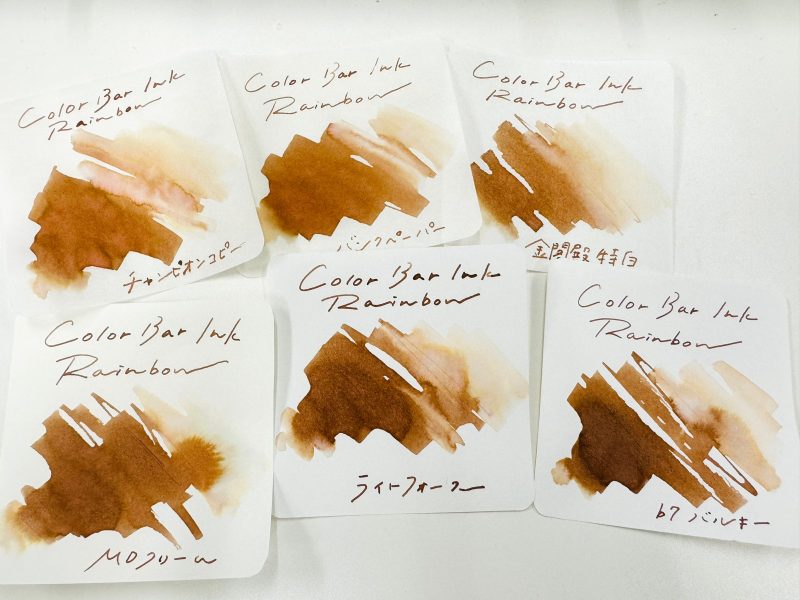 Color Bar Ink
Rainbow
チャンピオンコピー
Color Bar Ink
Rainbow
バンクペーパー
Color Bar Ink
Rainbow
金閣殿 特白
Color Bar Ink
Rainbow
MDクリーム
Color Bar Ink
Rainbow
ライトフォース
Color Bar Ink
Rainbow
b7 バルキー